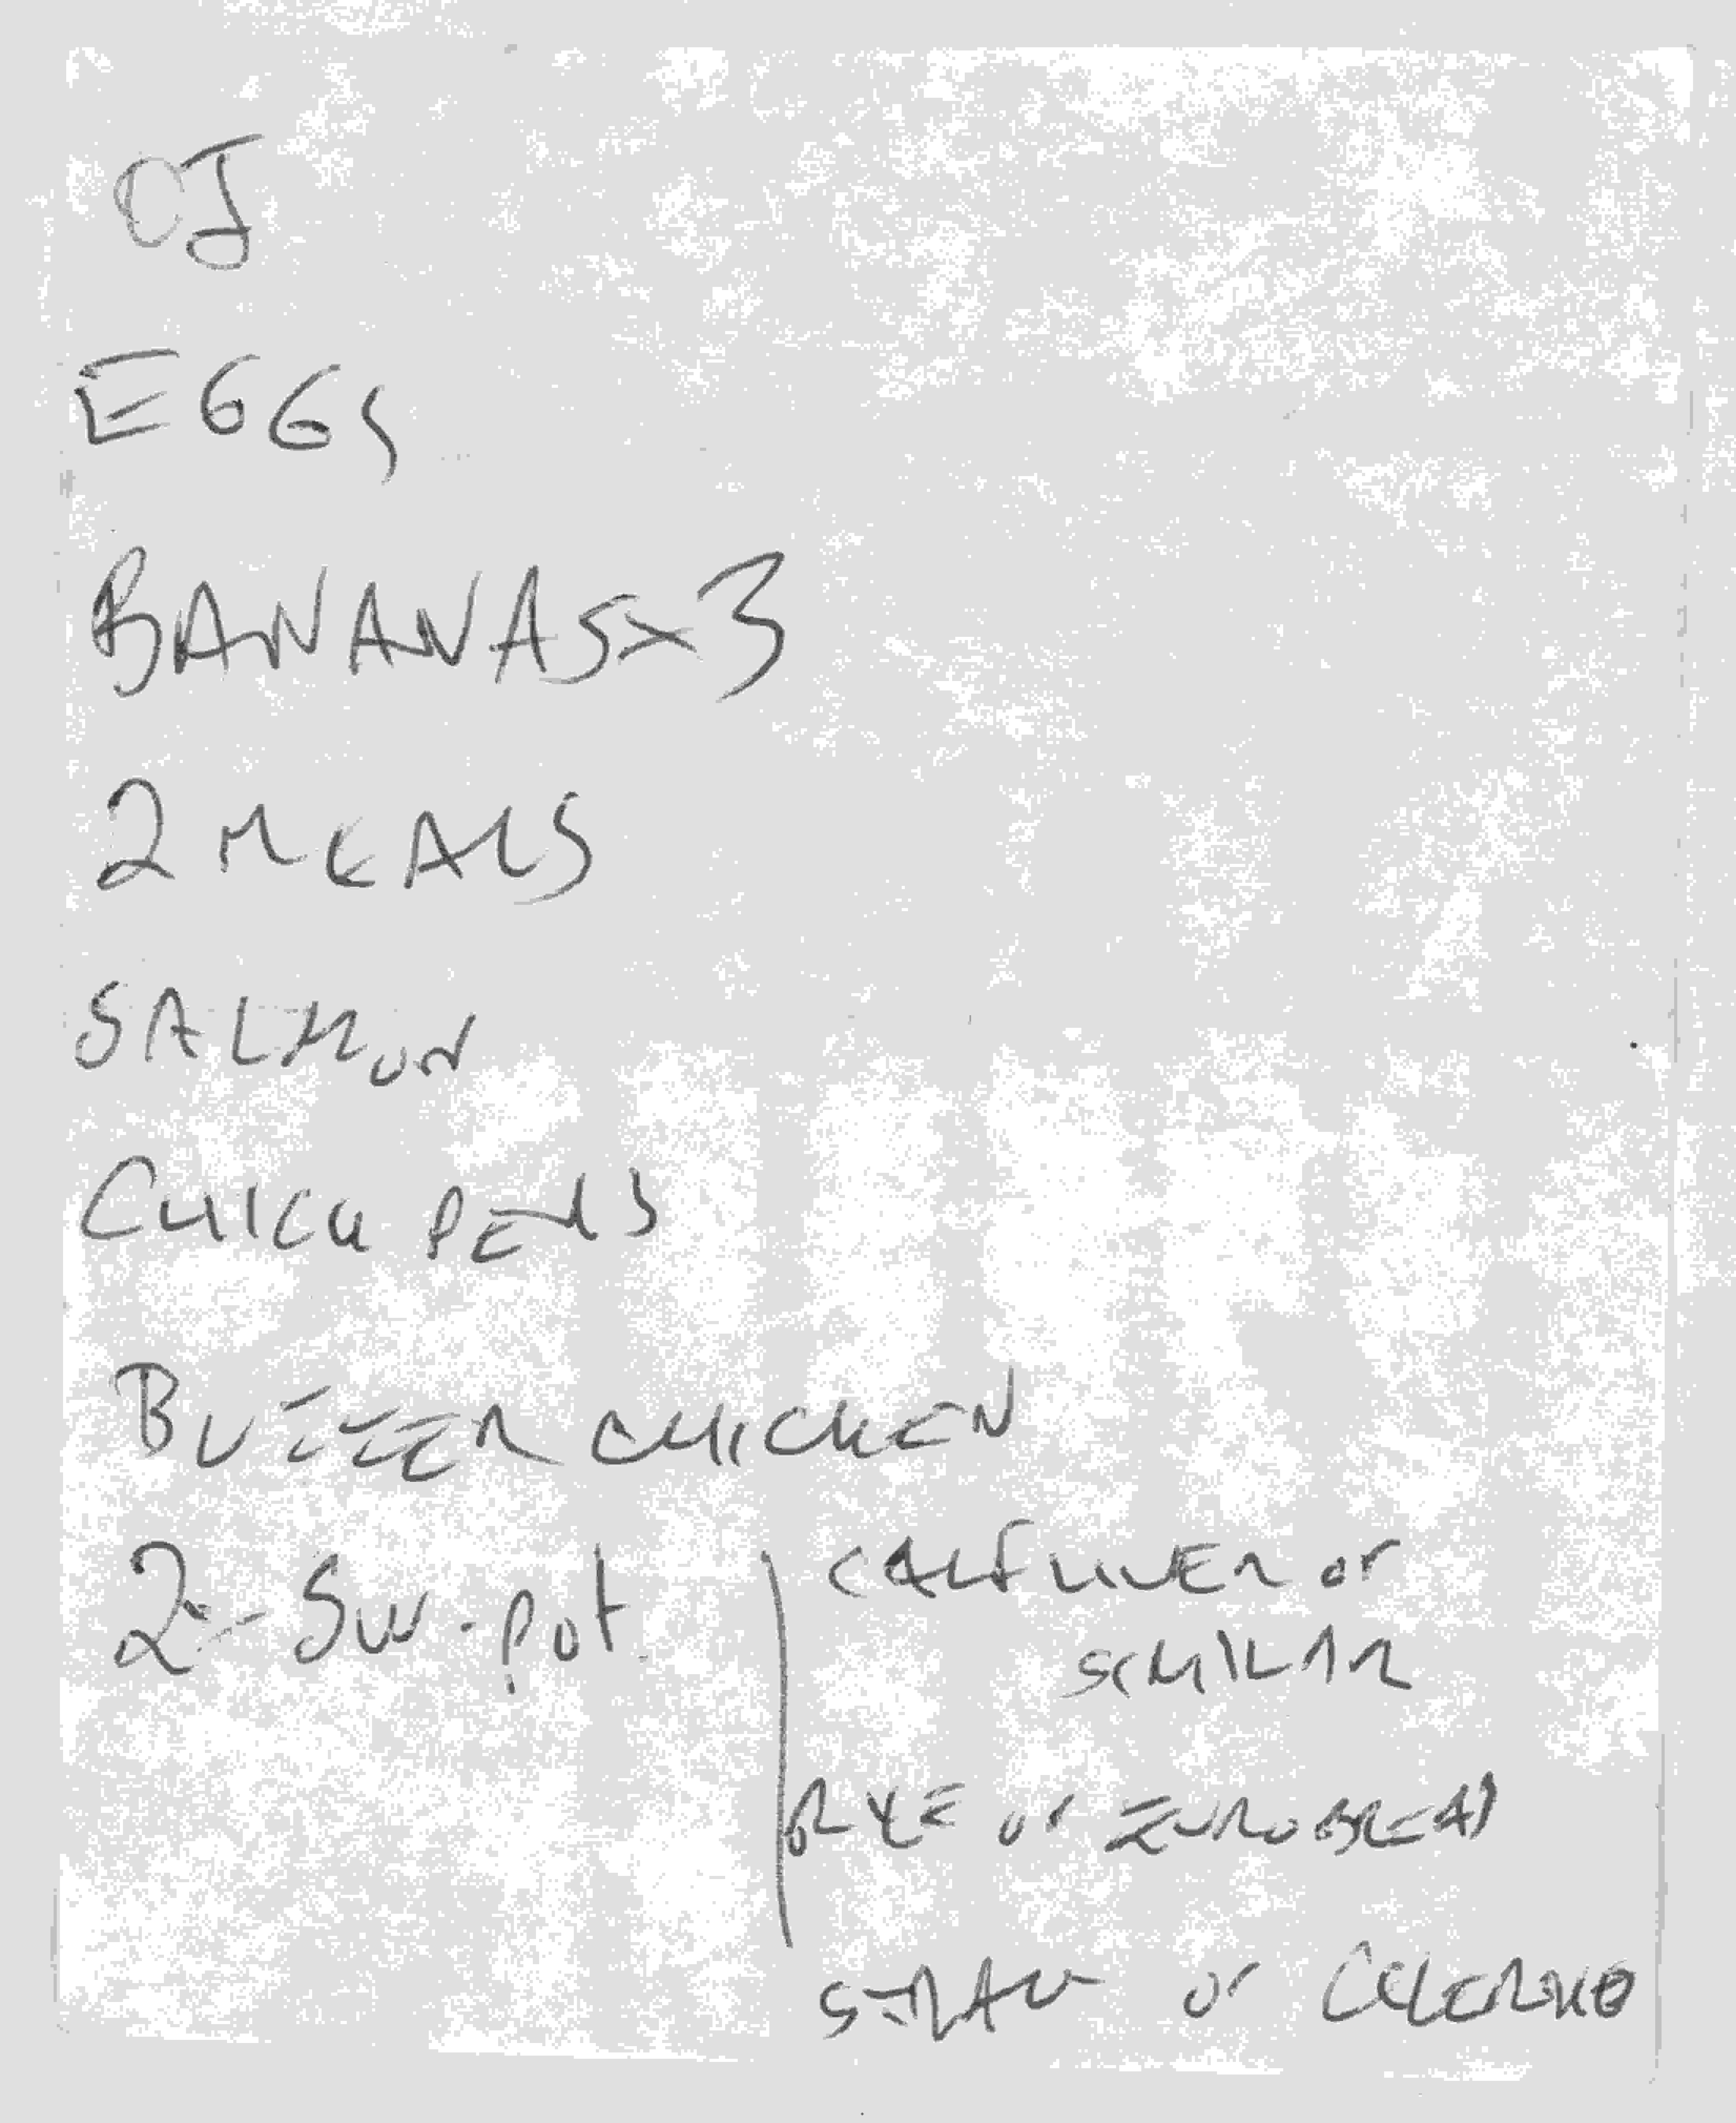 OJ
EGGS
BANANAS x 3
2 MEALS
SALMON
CHICK PEAS
BUTTER CHICKEN
2 - SW. Pot
CALF LIVER or
SIMILAR
RYE or EURO BREAD
or